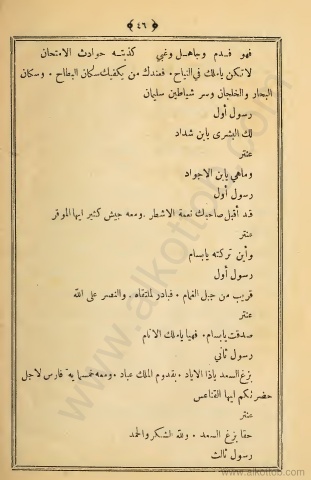 ﴿ ٤٦ ﴾
فهو فدم وجاهل وغبي كذبته حوادث الامتحان
لا تكن ياملك في النباح ٠ فعندك من يكفيك سكان البطاح ٠ وسكان
البحار والخلجان وسر شياطين سليمان
رسول أول
لك البشرى يابن شداد
عنتر
وماهي يابن الاجواد
رسول أول
قد أقبل صاحبك نعمة الاشطر ٠ ومعه جيش كثير ايها الموقر
عنتر
وأين تركته يابسام
رسول أول
قريب من جبل الغمام ٠ فبادر لملتقاه ٠ والنصر على الله
عنتر
صدقت يابسام ٠ فهيا ياملك الانام
رسول ثاني
بزغ السعد ياذا الاياد ٠ بقدوم الملك عباد ٠ ومعه خمسماية فارس لاجل
حضرتكم ايها القناعس
عنتر
حقا بزغ السعد ٠ ولله الشكر والحمد
رسول ثالث
www.alkottob.com
www.alkottob.com